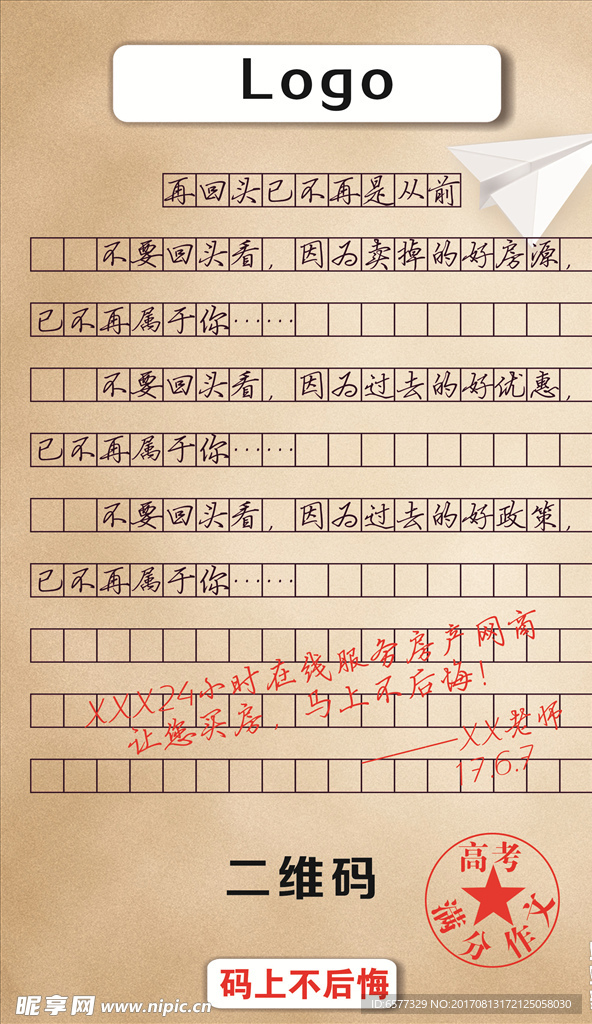 Logo
再回头已不再是从前
不要回头看，因为卖掉的好房源，
已不再属于你……
不要回头看，因为过去的好优惠，
已不再属于你……
不要回头看，因为过去的好政策，
已不再属于你……
XXX24小时在线服务房产网商
让您买房，马上不后悔！
——XX老师
17.6.7
二维码
高考
满分作文
码上不后悔
昵享网 www.nipic.cn
ID:6577329 NO:20170813172125058030